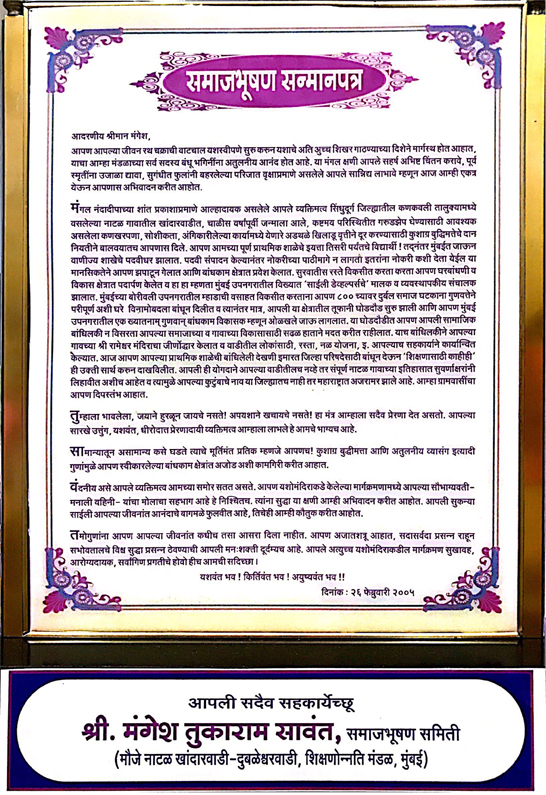 समाजभूषण सन्मानपत्र
आदरणीय श्रीमान मंगेश,
आपण आपल्या जीवन रथ चक्राची वाटचाल यशस्वीपणे सुरु करुन यशाचे अति उच्च शिखर गाठण्याच्या दिशेने मार्गस्थ होत आहात,
याचा आम्हा मंडळाच्या सर्व सदस्य बंधू भगिनींना अतुलनीय आनंद होत आहे. या मंगल क्षणी आपले सहर्ष अभिष्ट चिंतन करावे, पूर्व
स्मृतींना उजाळा द्यावा, सुगंधीत फुलांनी बहरलेल्या परिजात वृक्षाप्रमाणे असलेले आपले सान्निध लाभावे म्हणून आज आम्ही एकत्र
येऊन आपणास अभिवादन करीत आहोत.
मंगल नंदादीपाच्या शांत प्रकाशाप्रमाणे आल्हादायक असलेले आपले व्यक्तिमत्व सिंधुदूर्ग जिल्ह्यातील कणकवली तालुक्यामध्ये
वसलेल्या नाटळ गावातील खांदारवाडीत, चाळीस वर्षापूर्वी जन्माला आले, कष्टमय परिस्थितीत गरुडझेप घेण्यासाठी आवश्यक
असलेला कणखरपणा, सोशीकता, अंगिकारीलेल्या कार्यामध्ये येणारे अडथळे खिलाडू वृत्तीने दूर करण्यासाठी कुशाग्र बुद्धिमत्तेचे दान
नियतीने बालवयातच आपणास दिले. आपण आमच्या पूर्ण प्राथमिक शाळेचे इयत्ता तिसरी पर्यंतचे विद्यार्थी ! तद्नंतर मुंबईत जाऊन
वाणीज्य शाखेचे पदवीधर झालात. पदवी संपादन केल्यानंतर नोकरीच्या पाठीमागे न लागतो इतरांना नोकरी कशी देता येईल या
मानसिकतेने आपण झपाटून गेलात आणि बांधकाम क्षेत्रात प्रवेश केलात. सुरवातीस रस्ते विकसीत करता करता आपण घरबांधणी व
विकास क्षेत्रात पदार्पण केलेत व हा हा म्हणता मुंबई उपनगरातील विख्यात 'साईली डेव्हलपर्सचे' मालक व व्यवस्थापकीय संचालक
झालात. मुंबईच्या बोरीवली उपनगरातील म्हाडाची वसाहत विकसीत करताना आपण ८०० च्यावर दुर्बल समाज घटकाना गुणवत्तेने
परीपूर्ण अशी घरे विनामोबदला बांधून दिलीत व त्यानंतर मात्र, आपली या क्षेत्रातील तूफानी घोडदौड सुरु झाली आणि आपण मुंबई
उपनगरातील एक ख्यातनाम् गुणवान् बांधकाम विकासक म्हणून ओळखले जाऊ लागलात. या घोडदौडीत आपण आपली सामाजिक
बांधिलकी न विसरता आपल्या समाजाच्या व गावाच्या विकासासाठी सढळ हाताने मदत करीत राहीलात. याच बांधिलकीने आपल्या
गावच्या श्री रामेश्वर मंदिराचा जीर्णोद्धार केलात व वाडीतील लोकांसाठी, रस्ता, नळ योजना, इ. आपल्याच सहकार्याने कार्यान्वित
केल्यात. आज आपण आपल्या प्राथमिक शाळेची बांधिलेली देखणी इमारत जिल्हा परिषदेसाठी बांधून देऊन 'शिक्षणासाठी काहीही'
ही उक्ती सार्थ करुन दाखविलीत. आपली ही योगदाने आपल्या वाडीतीलच नव्हे तर संपूर्ण नाटळ गावाच्या इतिहासात सुवर्णाक्षरांनी
लिहावीत अशीच आहेत व त्यामुळे आपल्या कुटुंबाचे नाव या जिल्ह्यातच नाही तर महाराष्ट्रात अजरामर झाले आहे. आम्हा ग्रामवासींचा
आपण दिपस्तंभ आहात.
तुम्हाला भावलेला, जयाने हुरळून जायचे नसते! अपयशाने खचायचे नसते! हा मंत्र आम्हाला सदैव प्रेरणा देत असतो. आपल्या
सारखे उत्तुंग, यशवंत, धीरोदात्त प्रेरणादायी व्यक्तिमत्व आम्हाला लाभले हे आमचे भाग्यच आहे.
सामान्यातून असामान्य कसे घडते त्याचे मूर्तिमंत प्रतिक म्हणजे आपणच! कुशाग्र बुद्धीमत्ता आणि अतुलनीय व्यासंग इत्यादी
गुणांमुळे आपण स्वीकारलेल्या बांधकाम क्षेत्रांत अजोड अशी कामगिरी करीत आहात.
वंदनीय असे आपले व्यक्तिमत्व आमच्या समोर सतत असते. आपण यशोमंदिराकडे केलेल्या मार्गक्रमणामध्ये आपल्या सौभाग्यवती-
मनाली वहिनी- यांचा मोलाचा सहभाग आहे हे निश्चितच. त्यांना सुद्धा या क्षणी आम्ही अभिवादन करीत आहोत. आपली सुकन्या
साईली आपल्या जीवनांत आनंदाचे बागमळे फुलवीत आहे, तिचेही आम्ही कौतुक करीत आहोत.
तमोगुणांना आपण आपल्या जीवनांत कधीच तसा आसरा दिला नाहीत. आपण अजातशत्रू आहात, सदासर्वदा प्रसन्न राहून
सभोवतालचे विश्व सुद्धा प्रसन्न ठेवण्याची आपली मनःशक्ती दूर्दम्यच आहे. आपले अत्युच्च यशोमंदिराकडील मार्गक्रमण सुखावह,
आरोग्यदायक, सर्वांगिण प्रगतीचे होवो हीच आमची सदिच्छा।
यशवंत भव ! किर्तिवंत भव ! अयुष्यवंत भव !!
दिनांक : २६ फेब्रुवारी २००५
आपली सदैव सहकार्येच्छू
श्री. मंगेश तुकाराम सावंत, समाजभूषण समिती
(मौजे नाटळ खांदारवाडी-दुबळेश्वरवाडी, शिक्षणोन्नति मंडळ, मुंबई)